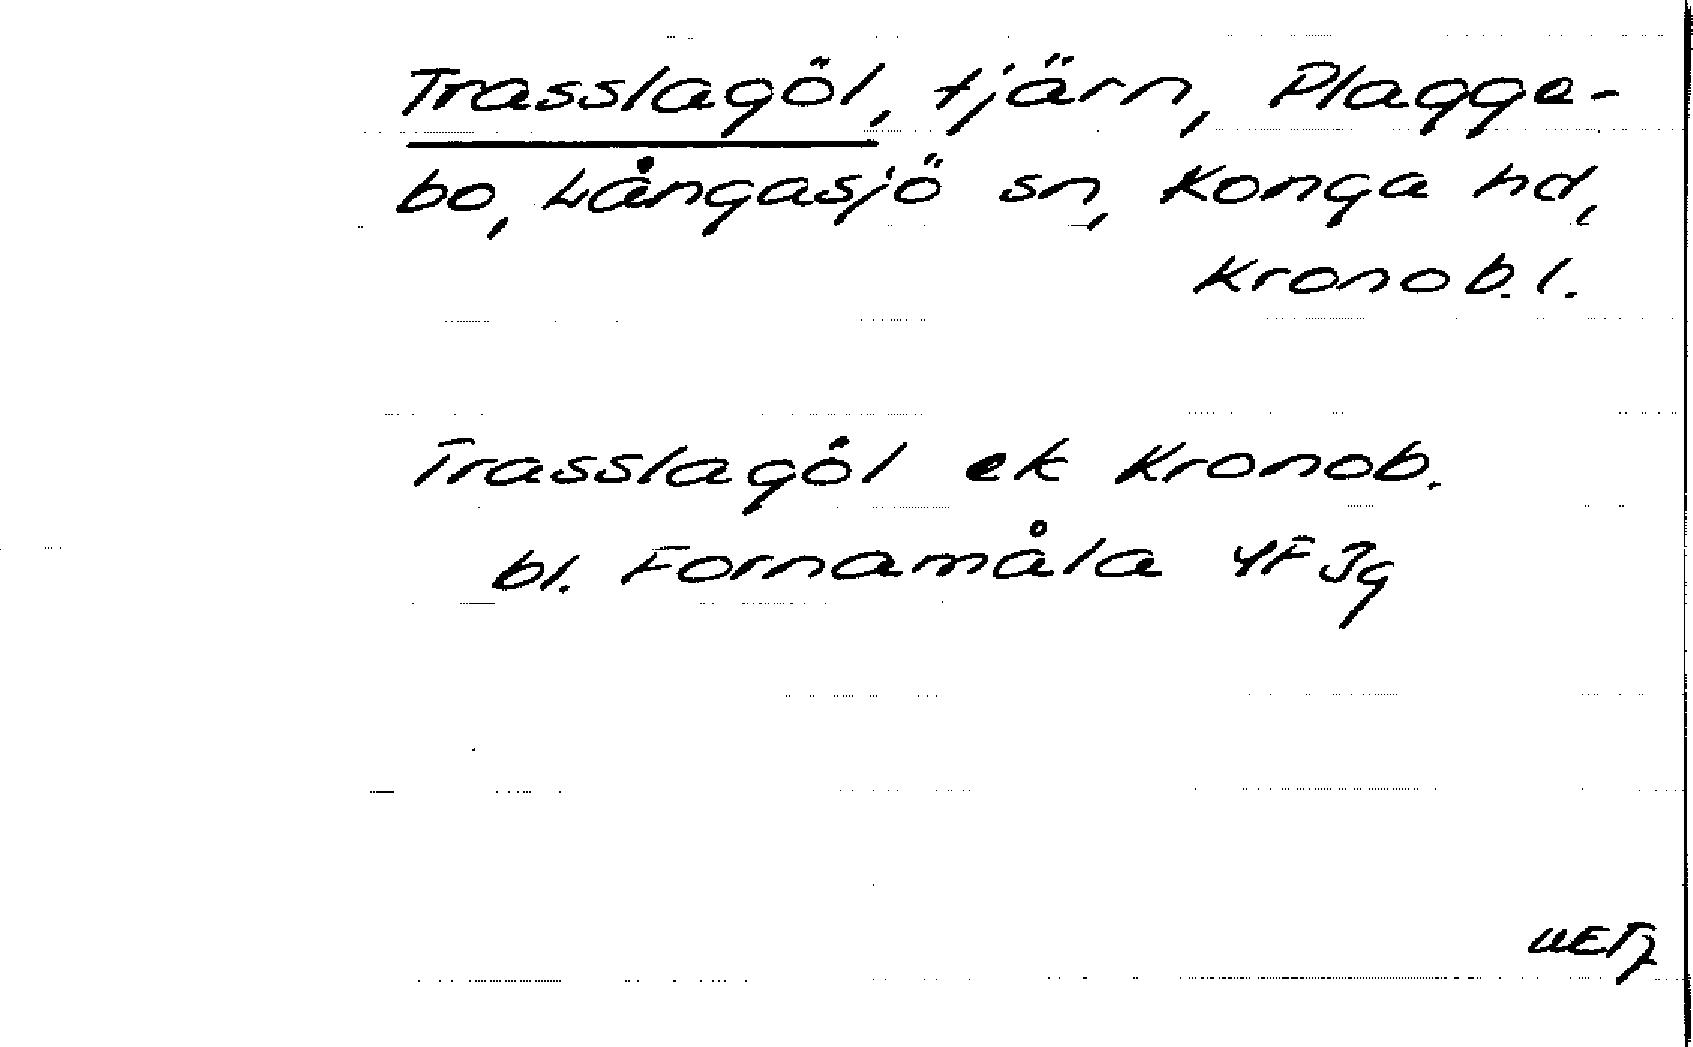 Trasslagöl, tjärn, Plagge-
bo, Långasjö sn, Konga hd,
Kronob. l.
Trasslagöl ek Kronob.
bl. Fornamåla 4F 3g